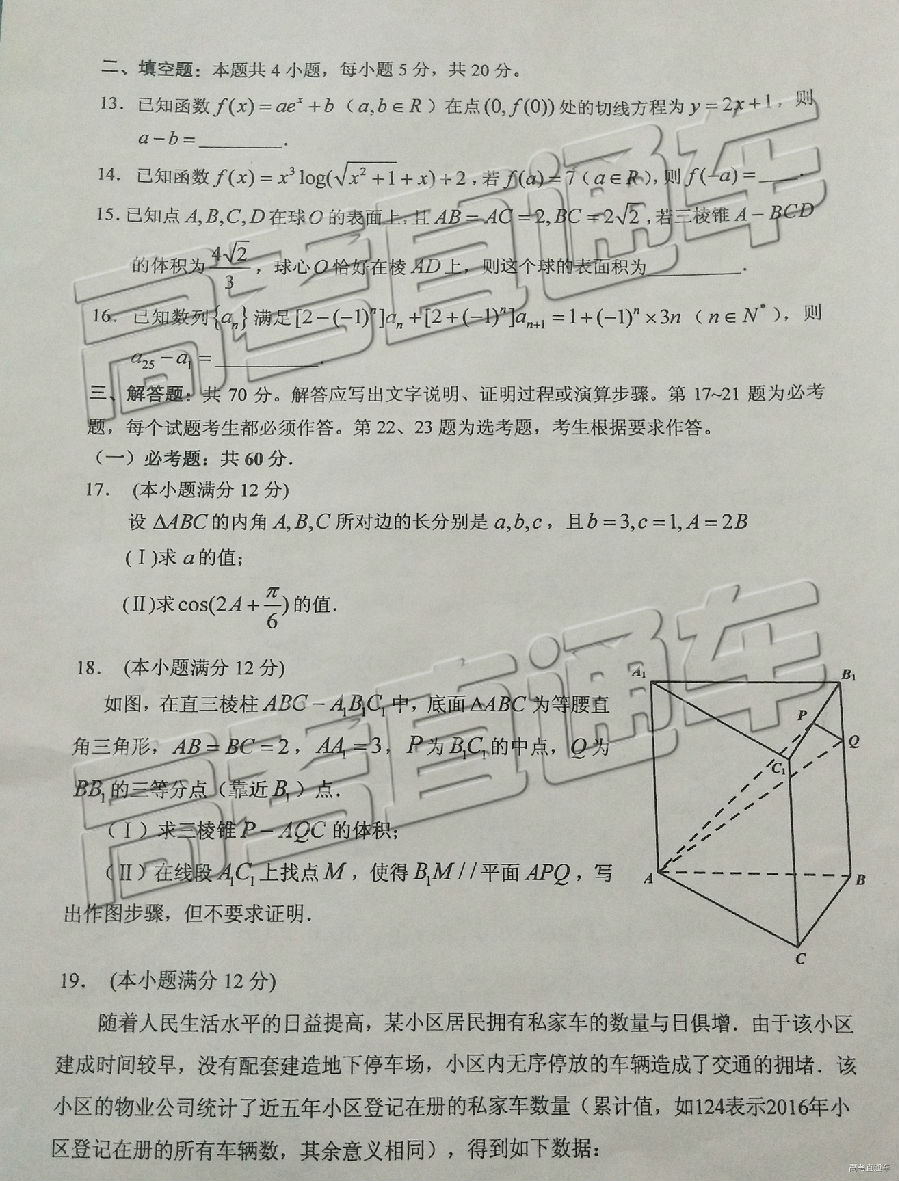 二、填空题：本题共 4 小题，每小题 5 分，共 20 分。
13．已知函数 f(x)=ae^x+b（a,b∈R）在点(0, f(0))处的切线方程为 y=2x+1，则
a−b=________.
14．已知函数 f(x)=x^3 log(√(x^2+1)+x)+2，若 f(a)=7（a∈R），则 f(−a)=____.
15．已知点 A,B,C,D 在球 O 的表面上，且 AB=AC=2, BC=2√2，若三棱锥 A−BCD
的体积为 4√2/3，球心 O 恰好在棱 AD 上，则这个球的表面积为________.
16．已知数列{a_n}满足[2−(−1)^n]a_n+[2+(−1)^n]a_{n+1}=1+(−1)^n×3n（n∈N^*），则
a_25−a_1=________.
三、解答题：共 70 分。解答应写出文字说明、证明过程或演算步骤。第 17~21 题为必考
题，每个试题考生都必须作答。第 22、23 题为选考题，考生根据要求作答。
（一）必考题：共 60 分.
17． (本小题满分 12 分)
设 ΔABC 的内角 A,B,C 所对边的长分别是 a,b,c，且 b=3,c=1,A=2B
(Ⅰ)求 a 的值；
(Ⅱ)求 cos(2A+π/6) 的值.
18． (本小题满分 12 分)
如图，在直三棱柱 ABC−A_1B_1C_1 中，底面 ΔABC 为等腰直
角三角形，AB=BC=2，AA_1=3，P 为 B_1C_1 的中点，Q 为
BB_1 的三等分点（靠近 B_1）点.
（Ⅰ）求三棱锥 P−AQC 的体积；
（Ⅱ）在线段 A_1C_1 上找点 M，使得 B_1M//平面 APQ，写
出作图步骤，但不要求证明.
A_1
B_1
P
Q
C_1
A
B
C
19． (本小题满分 12 分)
随着人民生活水平的日益提高，某小区居民拥有私家车的数量与日俱增．由于该小区
建成时间较早，没有配套建造地下停车场，小区内无序停放的车辆造成了交通的拥堵．该
小区的物业公司统计了近五年小区登记在册的私家车数量（累计值，如124表示2016年小
区登记在册的所有车辆数，其余意义相同），得到如下数据：
高考直通车
高考直通车
高考直通车